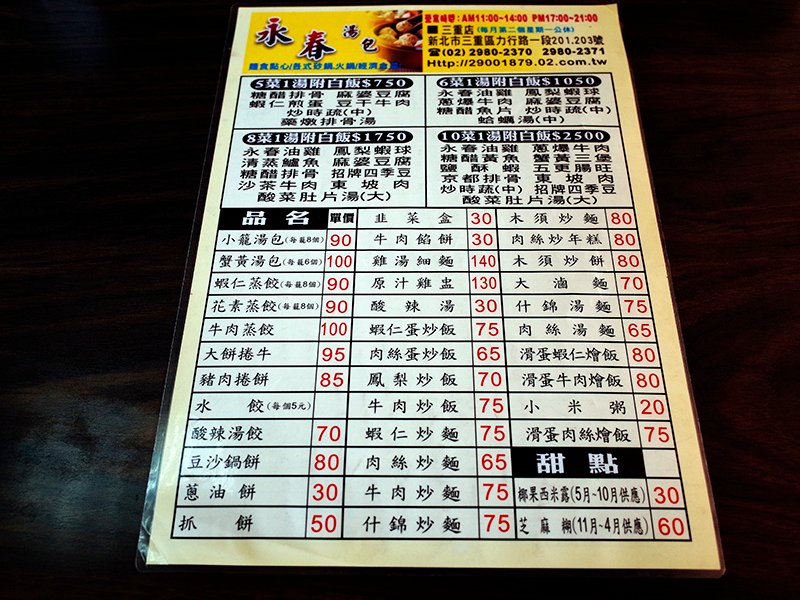 永春湯包
麵食點心/各式砂鍋.火鍋/經濟合菜
營業時間：AM11:00~14:00 PM17:00~21:00
■三重店(每月第二個星期一公休)
新北市三重區力行路一段201.203號
☎(02) 2980-2370 2980-2371
Http://29001879.02.com.tw
5菜1湯附白飯$750
糖醋排骨 麻婆豆腐
蝦仁煎蛋 豆干牛肉
炒時蔬(中)
藥燉排骨湯
6菜1湯附白飯$1050
永春油雞 鳳梨蝦球
蔥爆牛肉 麻婆豆腐
糖醋魚片 炒時蔬(中)
蛤蠣湯(中)
8菜1湯附白飯$1750
永春油雞 鳳梨蝦球
清蒸鱸魚 麻婆豆腐
糖醋排骨 招牌四季豆
沙茶牛肉 東坡肉
酸菜肚片湯(大)
10菜1湯附白飯$2500
永春油雞 蔥爆牛肉
糖醋黃魚 蟹黃三堡
鹽酥蝦 五更腸旺
京都排骨 東坡肉
炒時蔬(中) 招牌四季豆
酸菜肚片湯(大)
品名 單價
小籠湯包(每籠8個) 90
蟹黃湯包(每籠6個) 100
蝦仁蒸餃(每籠8個) 90
花素蒸餃(每籠8個) 90
牛肉蒸餃 100
大餅捲牛 95
豬肉捲餅 85
水餃(每個5元)
酸辣湯餃 70
豆沙鍋餅 80
蔥油餅 30
抓餅 50
韭菜盒 30
牛肉餡餅 30
雞湯細麵 140
原汁雞盅 130
酸辣湯 30
蝦仁蛋炒飯 75
肉絲蛋炒飯 65
鳳梨炒飯 70
牛肉炒飯 75
蝦仁炒麵 75
肉絲炒麵 65
牛肉炒麵 75
什錦炒麵 75
木須炒麵 80
肉絲炒年糕 80
木須炒餅 80
大滷麵 70
什錦湯麵 75
肉絲湯麵 65
滑蛋蝦仁燴飯 80
滑蛋牛肉燴飯 80
小米粥 20
滑蛋肉絲燴飯 75
甜點
椰果西米露(5月~10月供應) 30
芝麻糊(11月~4月供應) 60